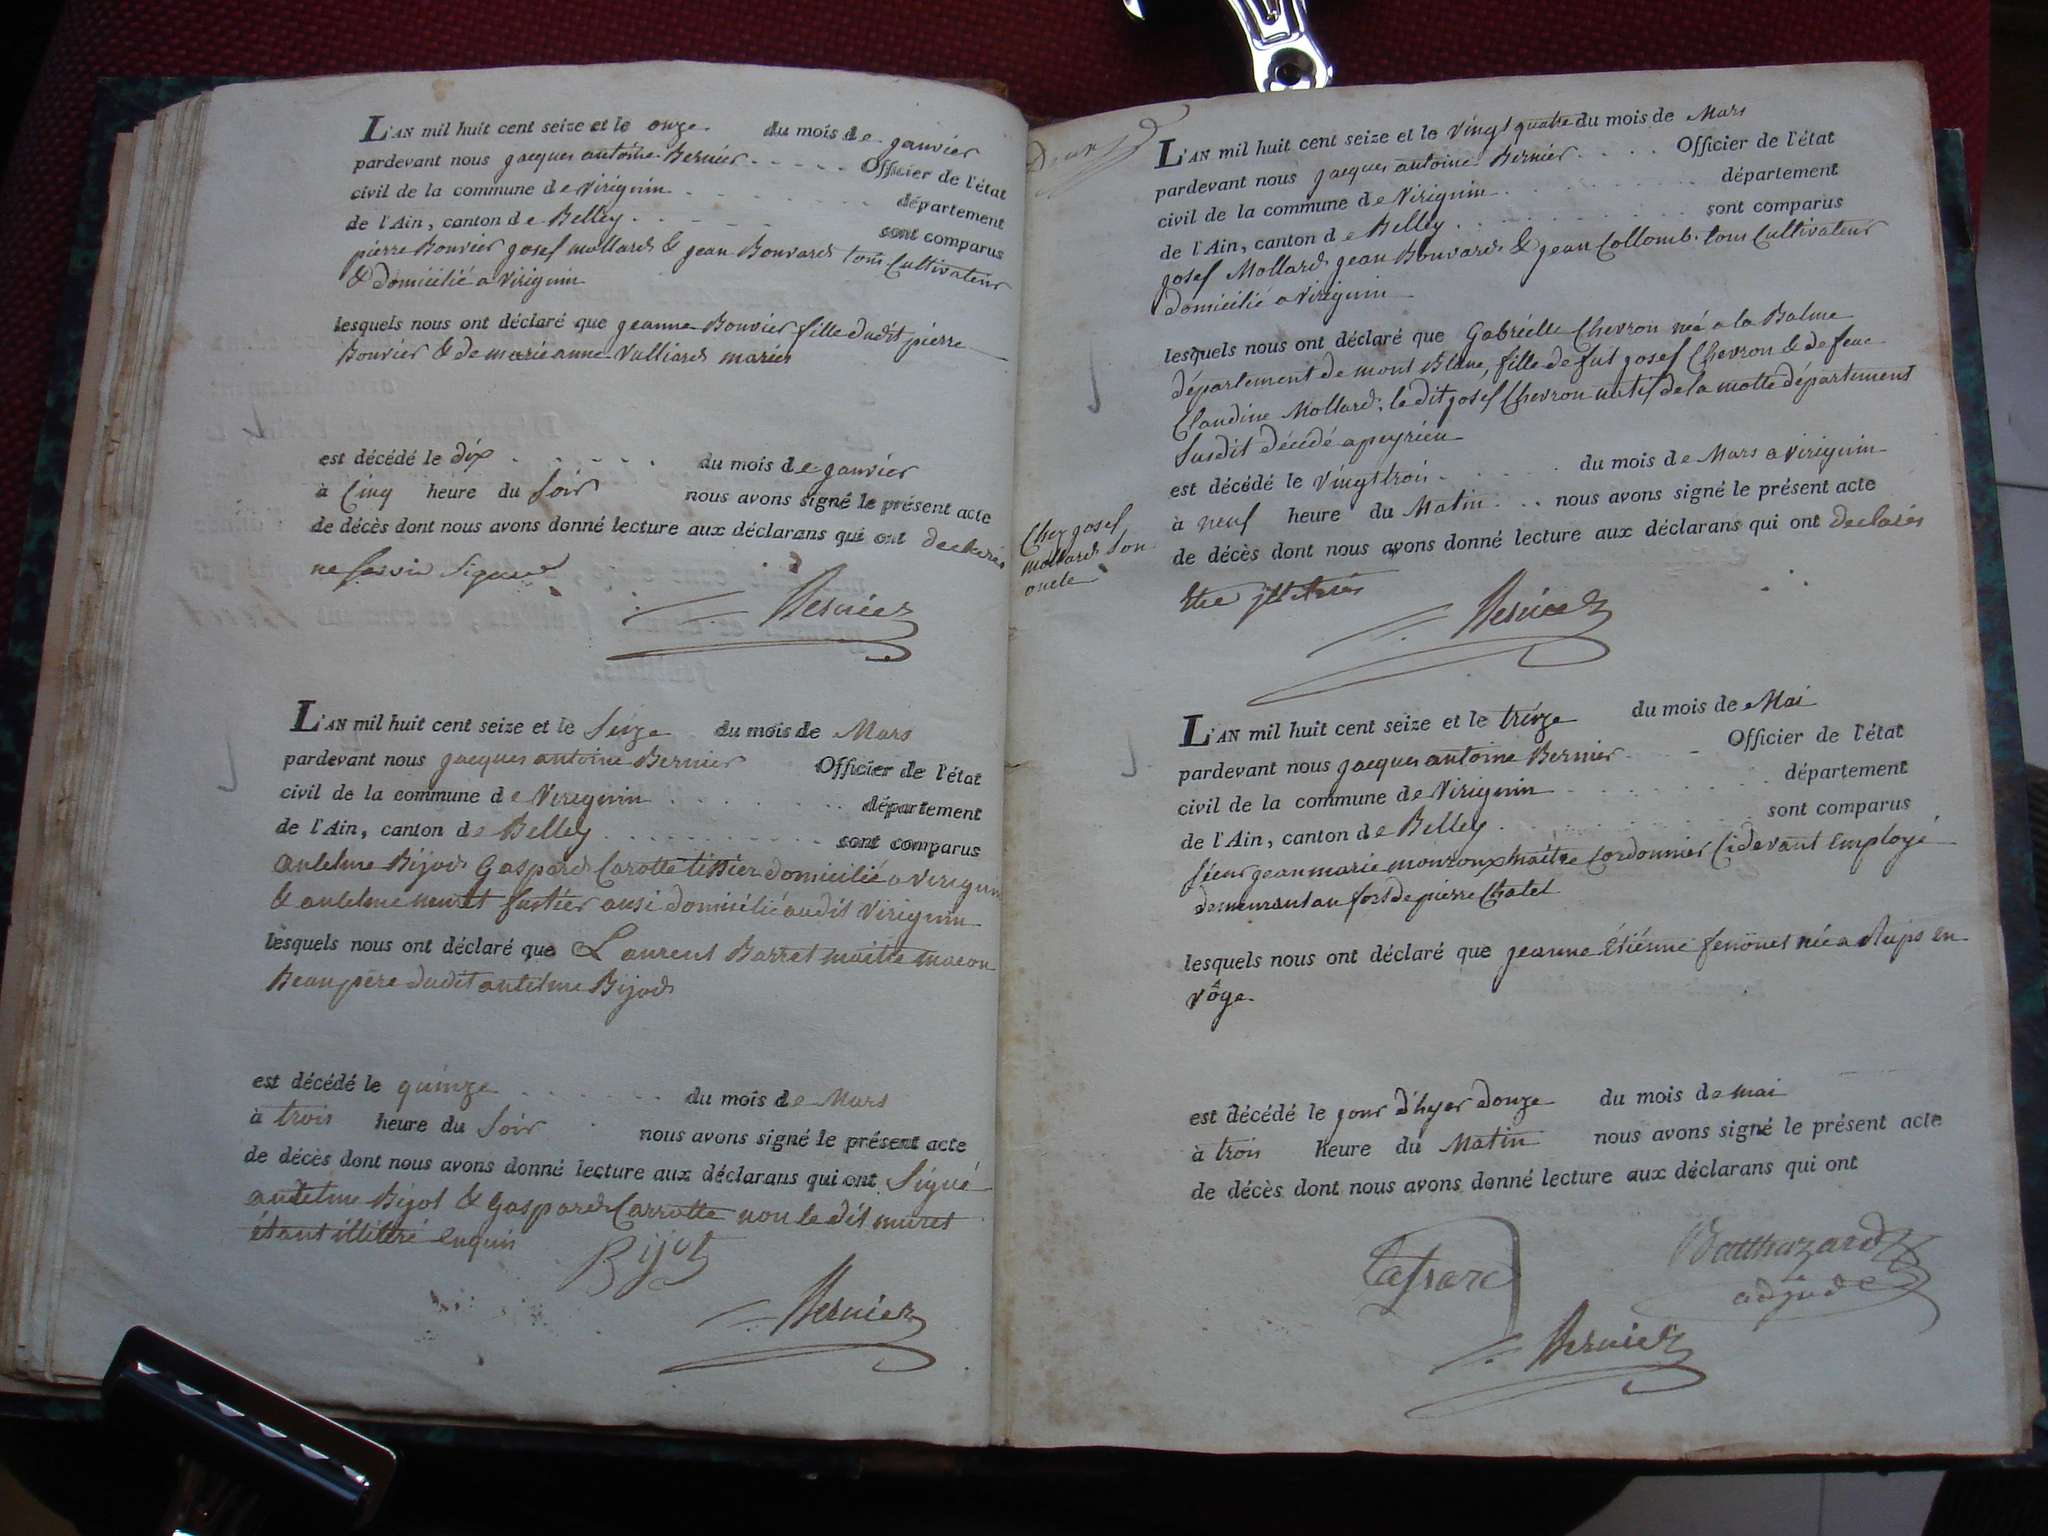 L'AN mil huit cent seize et le onze du mois de janvier
pardevant nous jacques antoine Bernier Officier de l'état
civil de la commune de Virignin département
de l'Ain, canton de Belley sont comparus
pierre Bouvier josef mollard & jean Bouvard tous Cultivateur
& domicilié a Virignin
lesquels nous ont déclaré que jeanne Bouvier fille dudit pierre
Bouvier & de marieanne Vulliard mariés
est décédé le dix du mois de janvier
à Cinq heure du Soir nous avons signé le présent acte
de décès dont nous avons donné lecture aux déclarans qui ont declarés
ne savoir signer
Bernier
L'AN mil huit cent seize et le Seize du mois de Mars
pardevant nous jacques antoine Bernier Officier de l'état
civil de la commune de Virignin département
de l'Ain, canton de Belley sont comparus
antelme Bijod Gaspard Carotte tissier domicilié a Virignin
& antelme muret fustier ausi domicilié audit Virignin
lesquels nous ont déclaré que Laurent Barret maitre macon
Beaupère dudit antelme Bijod
est décédé le quinze du mois de Mars
à trois heure du Soir nous avons signé le présent acte
de décès dont nous avons donné lecture aux déclarans qui ont Signé
antelme Bijot & Gaspard Carrotte non le dit muret
étant illitéré enquis
Bijot
Bernier
L'AN mil huit cent seize et le Vingt quatre du mois de Mars
pardevant nous jacques antoine Bernier Officier de l'état
civil de la commune de Virignin département
de l'Ain, canton de Belley sont comparus
josef Mollard jean Bouvard & jean Collomb tous Cultivateur
domicilié a Virignin
lesquels nous ont déclaré que Gabrielle Chevron née a la Balme
département de mont Blanc, fille de fut josef Chevron & de feue
Claudine Mollard; le dit josef Chevron natif de la motte département
Susdit décédé a peyrieu
est décédé le Vingt trois du mois de Mars a Virignin
Chez josef
mollard son
oncle
à neuf heure du Matin nous avons signé le présent acte
de décès dont nous avons donné lecture aux déclarans qui ont declarés
être
Bernier
L'AN mil huit cent seize et le treize du mois de Mai
pardevant nous jacques antoine Bernier Officier de l'état
civil de la commune de Virignin département
de l'Ain, canton de Belley sont comparus
sieur jean marie monroux maitre cordonnier Cidevant Employé
demeurant au fort de pierre Chatel
lesquels nous ont déclaré que jeanne Etiénne née a en
vôge
est décédé le jour d'hyer douze du mois de mai
à trois heure du Matin nous avons signé le présent acte
de décès dont nous avons donné lecture aux déclarans qui ont
Balthazard
Bernier